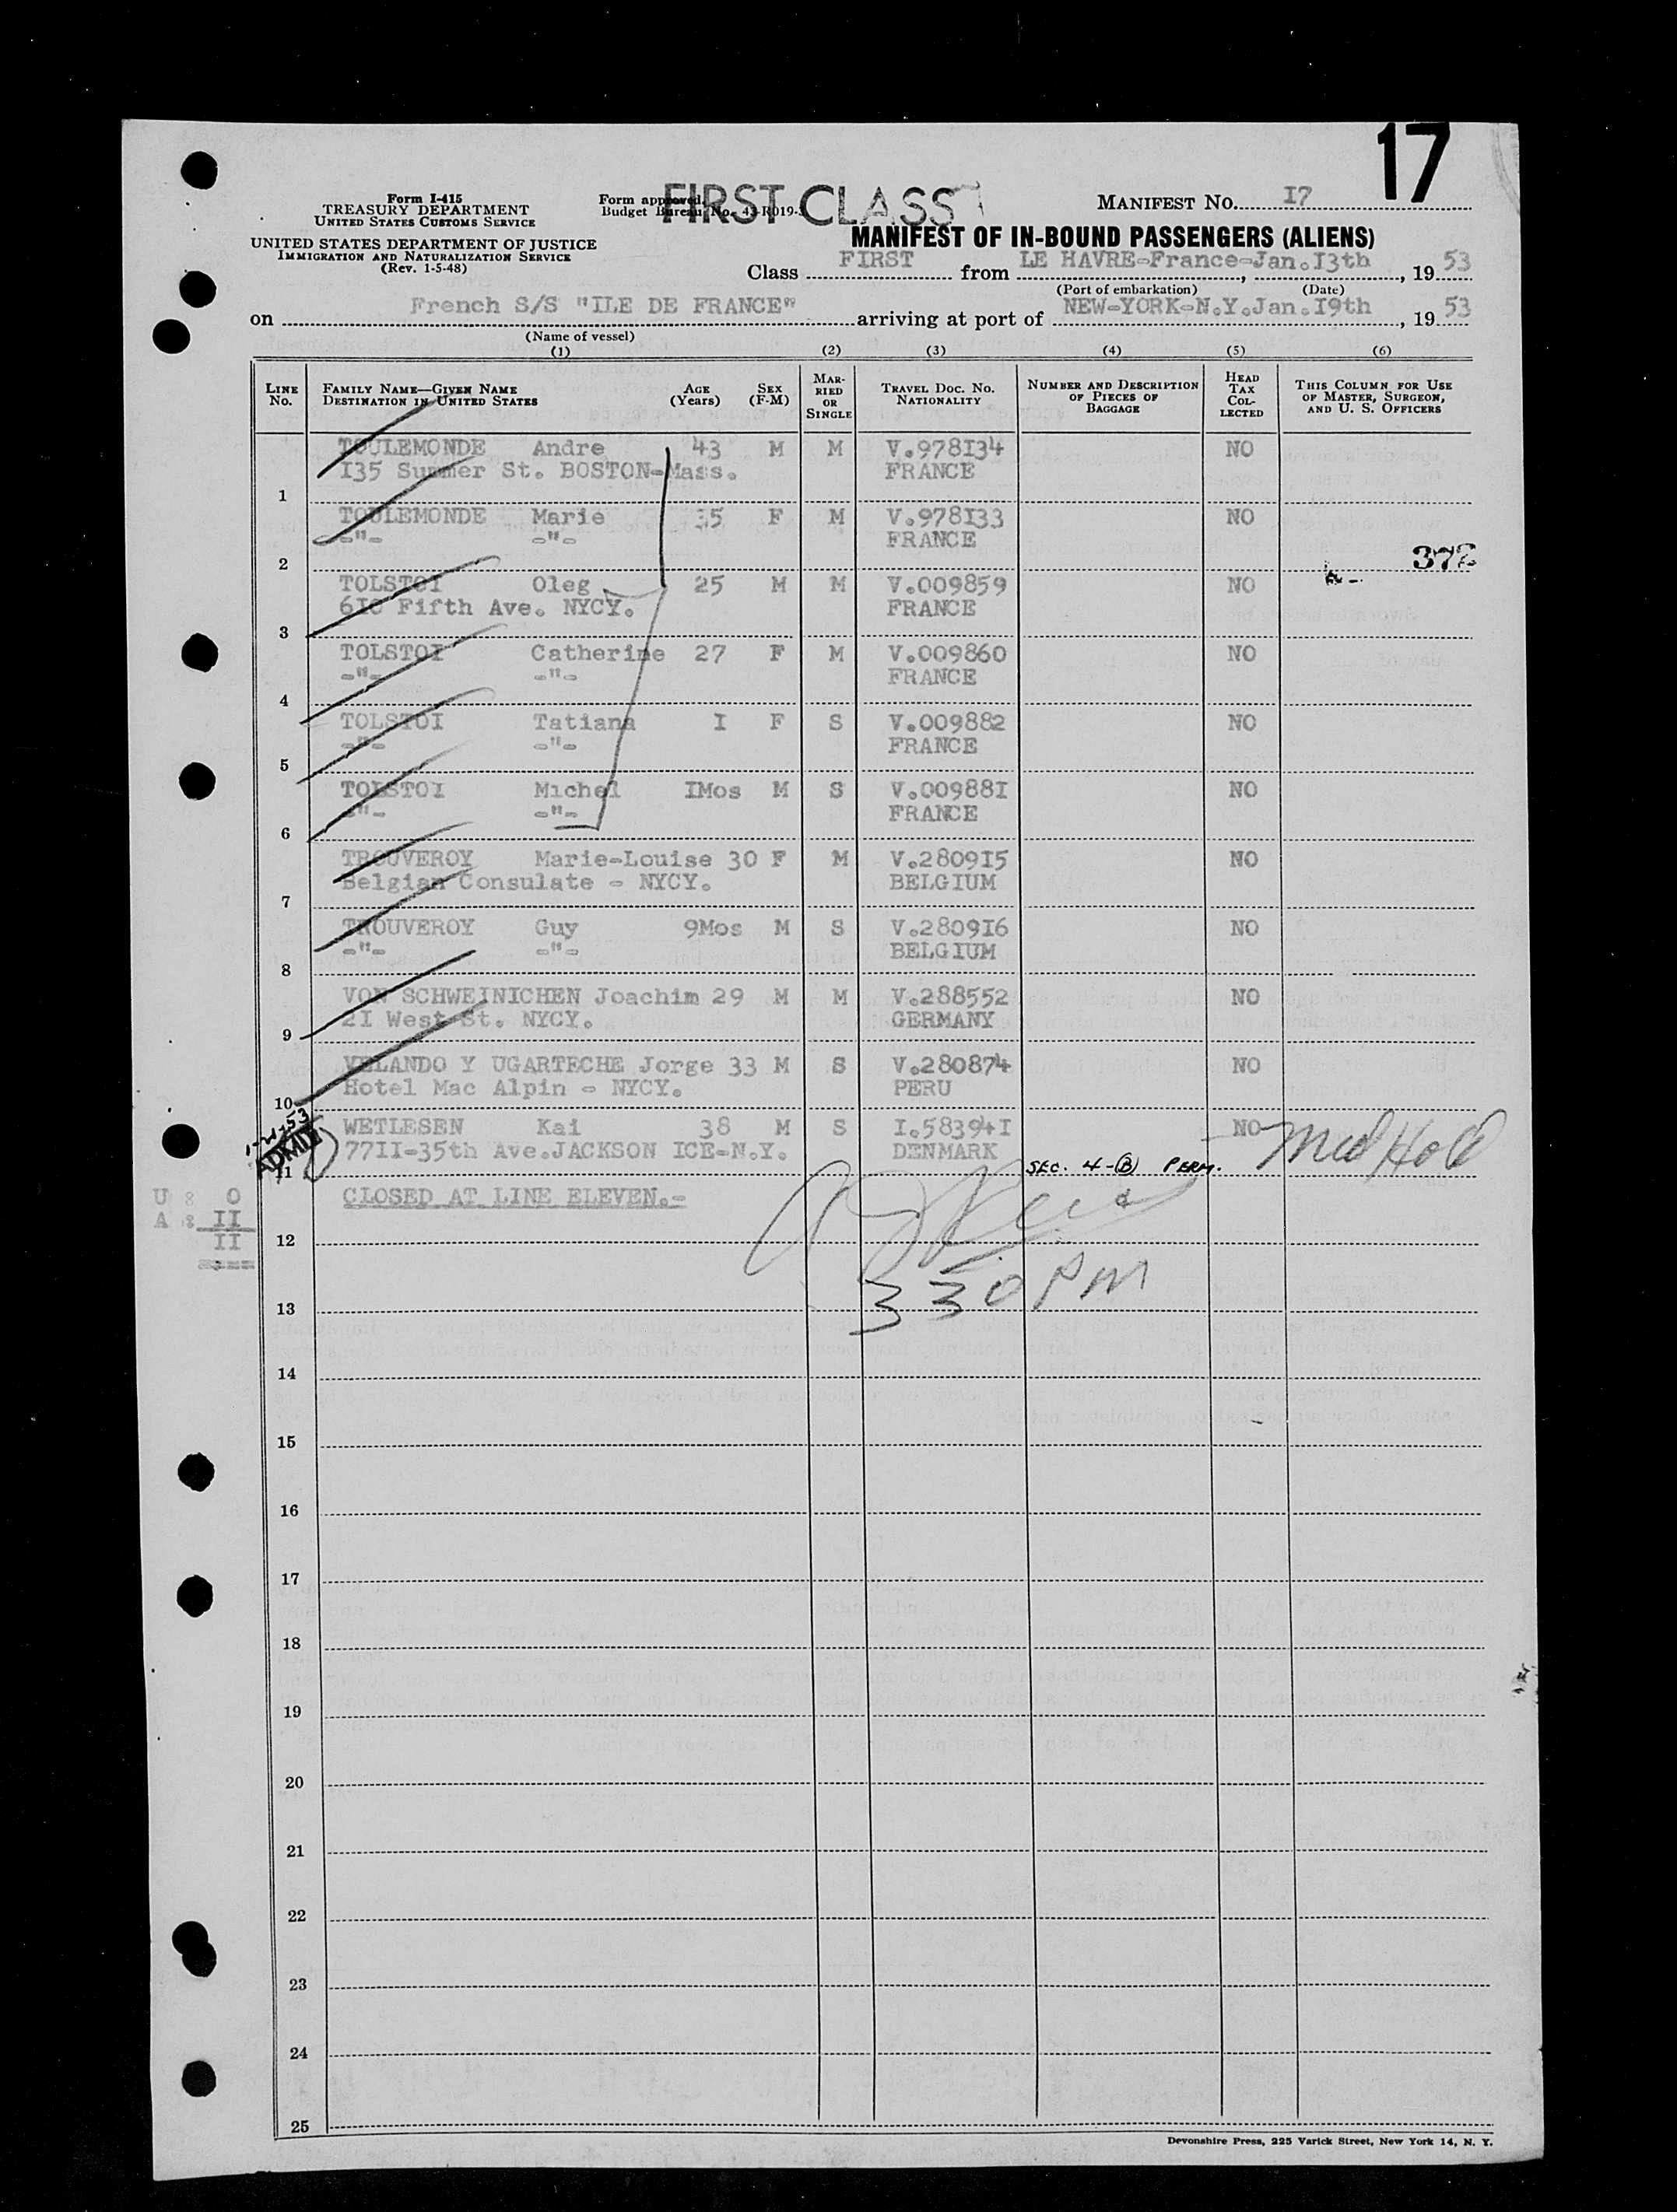 17
Form I-415
TREASURY DEPARTMENT
UNITED STATES CUSTOMS SERVICE
UNITED STATES DEPARTMENT OF JUSTICE
IMMIGRATION AND NATURALIZATION SERVICE
(Rev. 1-5-48)
Form approved.
Budget Bureau No. 43-R019-
FIRST CLASS
MANIFEST NO. I7
MANIFEST OF IN-BOUND PASSENGERS (ALIENS)
Class FIRST from LE HAVRE-France-Jan.I3th, 19 53
(Port of embarkation) (Date)
on French S/S "ILE DE FRANCE" arriving at port of NEW-YORK-N.Y.Jan.I9th, 19 53
(Name of vessel)
(1) (2) (3) (4) (5) (6)
LINE NO. FAMILY NAME—GIVEN NAME DESTINATION IN UNITED STATES AGE (YEARS) SEX (F-M) MARRIED OR SINGLE TRAVEL DOC. NO. NATIONALITY NUMBER AND DESCRIPTION OF PIECES OF BAGGAGE HEAD TAX COLLECTED THIS COLUMN FOR USE OF MASTER, SURGEON, AND U. S. OFFICERS
TOULEMONDE Andre 43 M M V.978I34 NO
I35 Summer St. BOSTON-Mass. FRANCE
1
TOULEMONDE Marie 35 F M V.978I33 NO
-"- -"- FRANCE
2
372
TOLSTOI Oleg 25 M M V.009859 NO
6I0 Fifth Ave. NYCY. FRANCE
3
TOLSTOI Catherine 27 F M V.009860 NO
-"- -"- FRANCE
4
TOLSTOI Tatiana I F S V.009882 NO
-"- -"- FRANCE
5
TOLSTOI Michel IMos M S V.00988I NO
-"- -"- FRANCE
6
TROUVEROY Marie-Louise 30 F M V.2809I5 NO
Belgian Consulate - NYCY. BELGIUM
7
TROUVEROY Guy 9Mos M S V.2809I6 NO
-"- -"- BELGIUM
8
VON SCHWEINICHEN Joachim 29 M M V.288552 NO
2I West St. NYCY. GERMANY
9
VELANDO Y UGARTECHE Jorge 33 M S V.280874 NO
Hotel Mac Alpin - NYCY. PERU
10
1-21-53
ADMIT
WETLESEN Kai 38 M S I.58394I NO Med Hold
77II-35th Ave.JACKSON ICE-N.Y. DENMARK
11 SEC. 4-(B) PERM.
U : 0
A : II
II
====
CLOSED AT LINE ELEVEN.-
12
330 PM
13
14
15
16
17
18
19
20
21
22
23
24
25
Devonshire Press, 225 Varick Street, New York 14, N. Y.